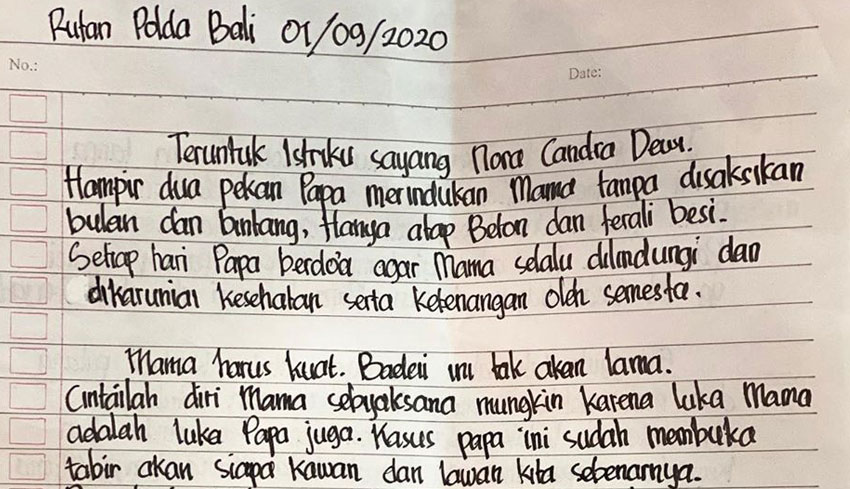 Rutan Polda Bali 01/09/2020
No.:
Date:
Teruntuk Istriku sayang Nora Candra Dewi.
Hampir dua pekan Papa merindukan Mama tanpa disaksikan
bulan dan bintang, Hanya atap Beton dan terali besi.
Setiap hari Papa berdo'a agar Mama selalu dilindungi dan
dikaruniai kesehatan serta ketenangan oleh semesta.
Mama harus kuat. Badai ini tak akan lama.
Cintailah diri Mama sebijaksana mungkin karena luka Mama
adalah luka Papa juga. Kasus papa ini sudah membuka
tabir akan siapa kawan dan lawan kita sebenarnya.